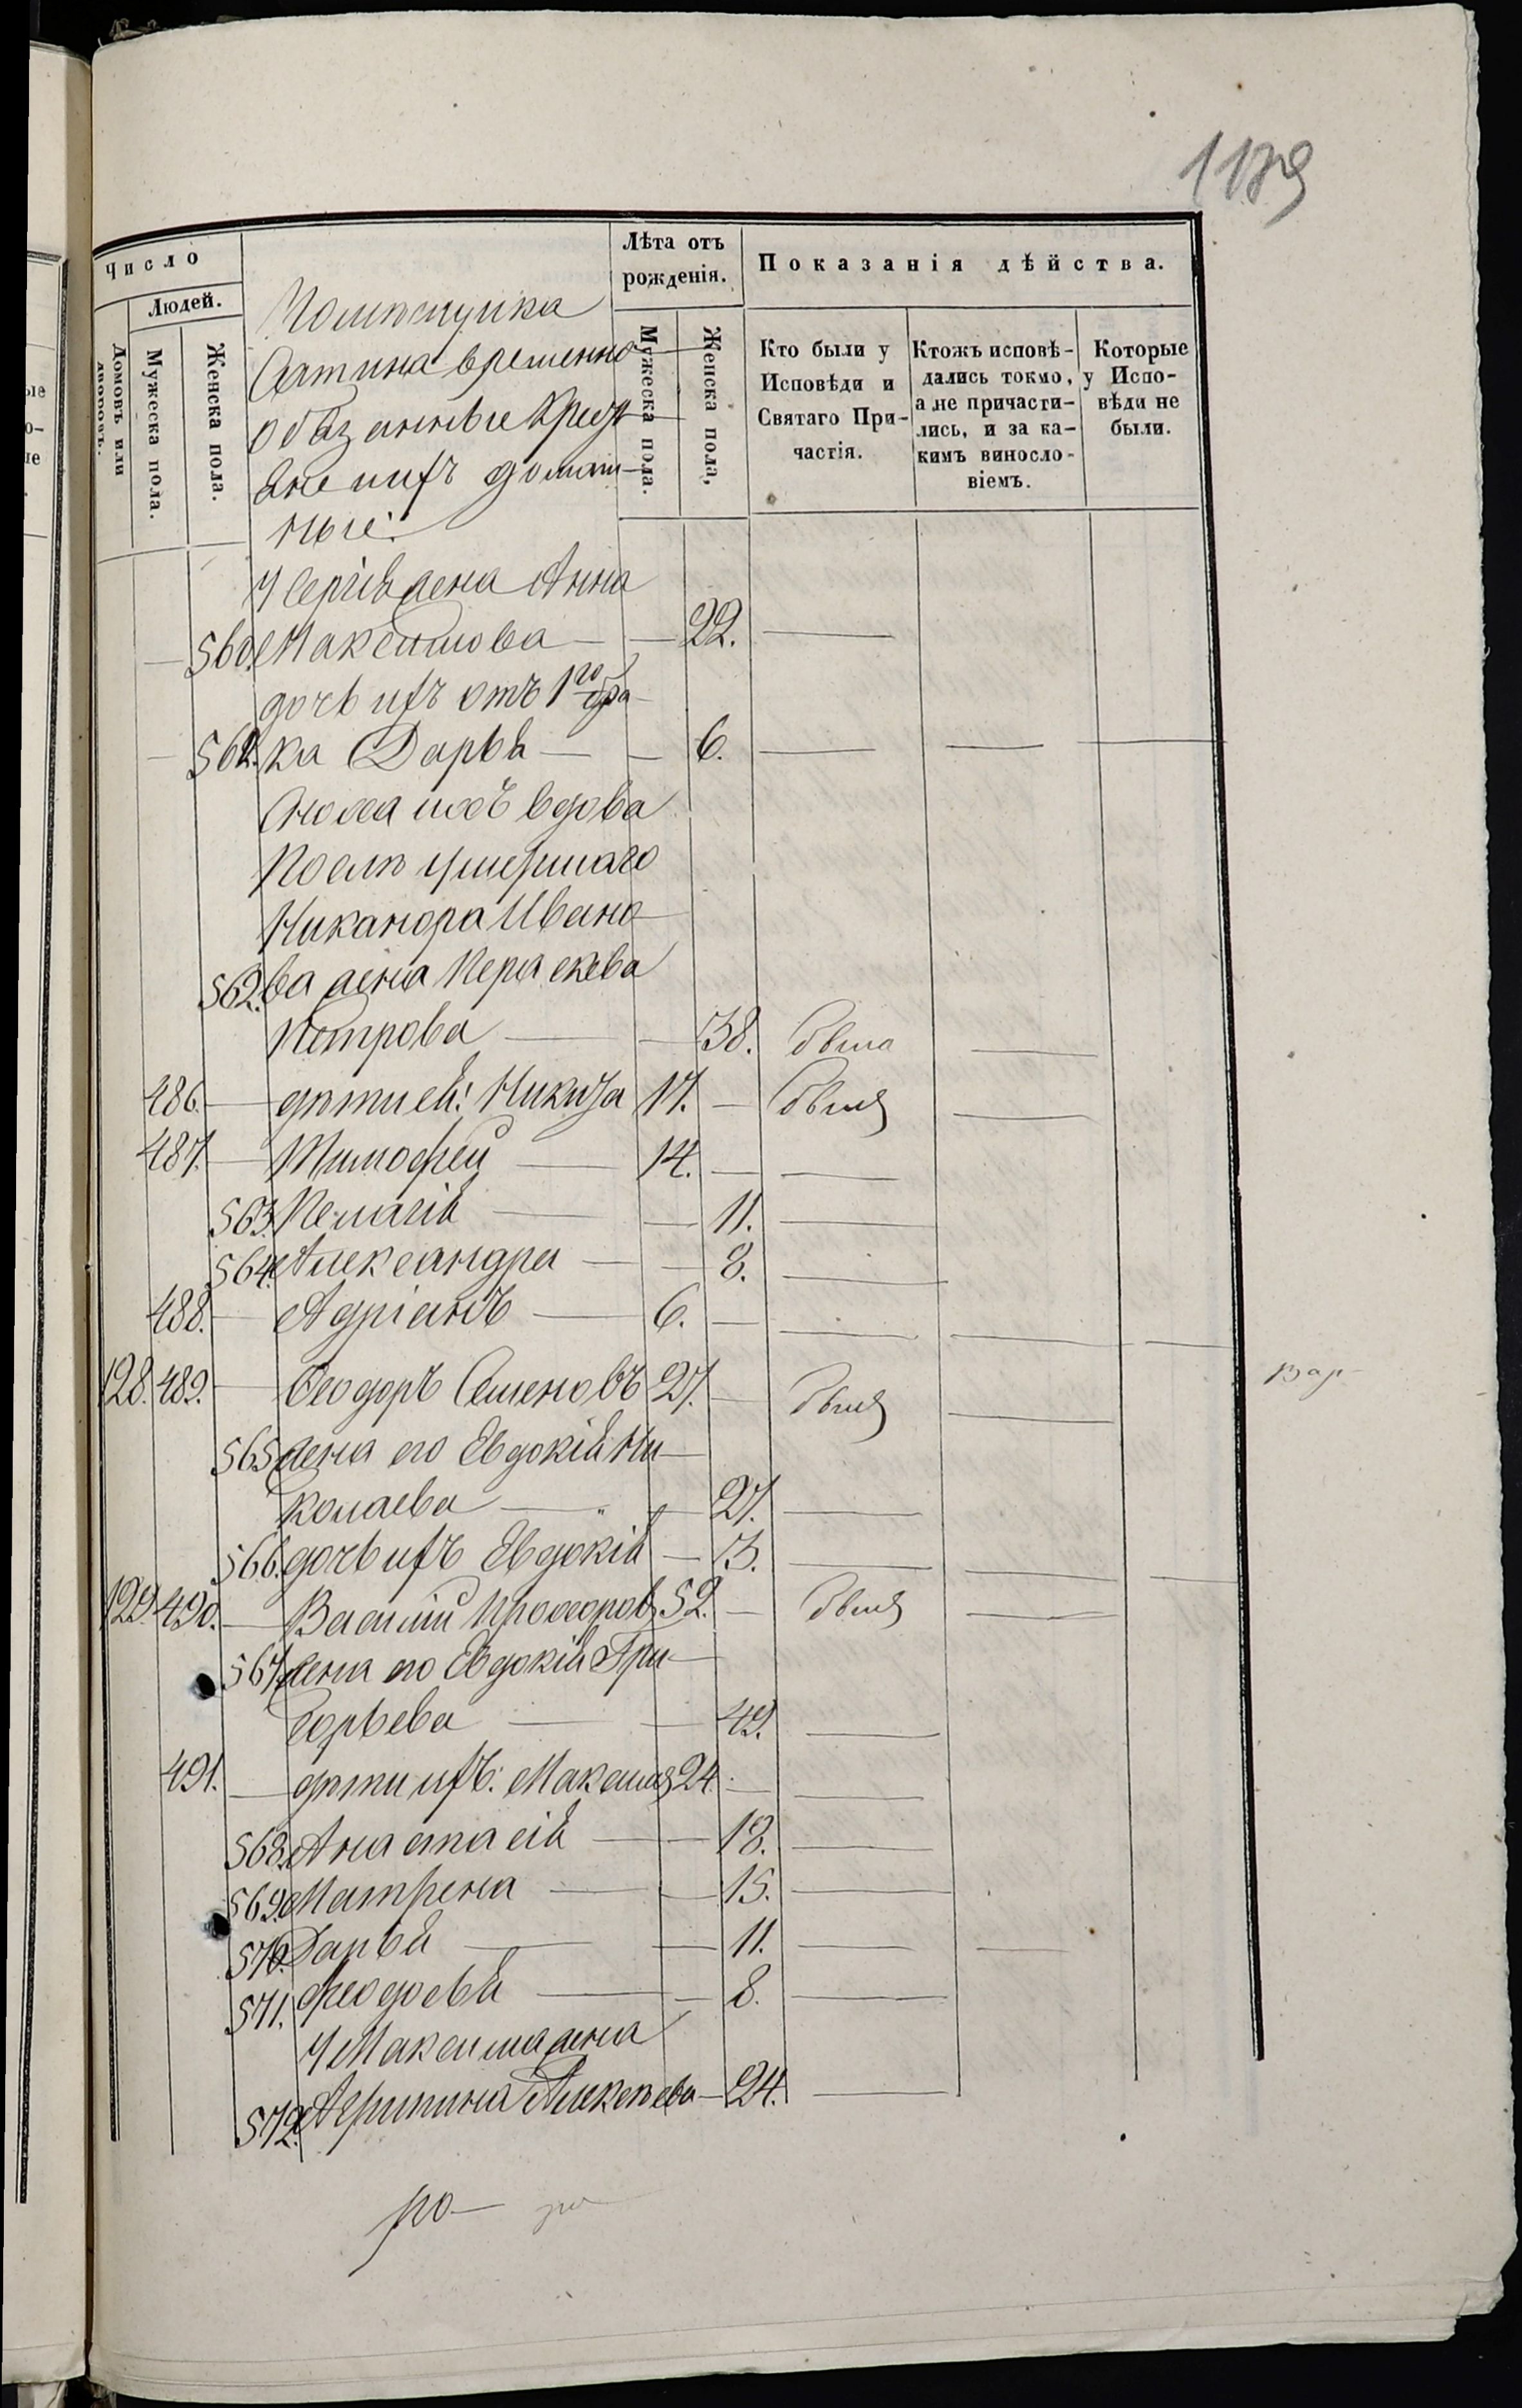 Число
Людей.
Домовъ или дворовъ.
Мужеска пола.
Женска пола.
Лѣта отъ рожденія.
Мужеска пола.
Женска пола,
Показанія дѣйства.
Кто были у Исповѣди и Святаго При-частія.
Ктожъ исповѣ-дались токмо, а не причасти-лись, и за ка-кимъ винослo-віемъ.
Которые у Испо-вѣди не были.
Помѣщика
временно
обязанные Кресть
яне ихъ домаш-
ные:
У Сергія жена Анна
560. Максимова — — 22. —
дочь ихъ отъ 1го бра-
561. ка Дарья — — 6. — — —
Сноха ихъ вдова
послѣ умершаго
Никанора Ивано-
562. ва жена Параскева
Петрова — — 38. была —
486. — дѣти ея: Никита 17. — былъ —
487. — Тимофей — 14. — —
563. Пелагія — — 11. —
564. Александра — — 8. —
488. — Адріанъ — 6. — — — —
128. 489. — Ѳеодоръ Семеновъ 27. — былъ —
565 жена его Евдокія Ни-
колаева — " — 27. —
566. дочь ихъ Евдокія — 3. — — —
129. 490. — Василій Прохоровъ 52. — былъ —
567. жена его Евдокія Гри-
горьева — — 49. —
491. — дѣти ихъ: Максимъ 24. — —
568. Анастасія — — 18. —
569. Матрена — — 15. —
570. Дарья — — 11. — —
571. Феодосья — — 8. —
У Максима жена
572. Агрипина Алексѣева — 24. —
по —